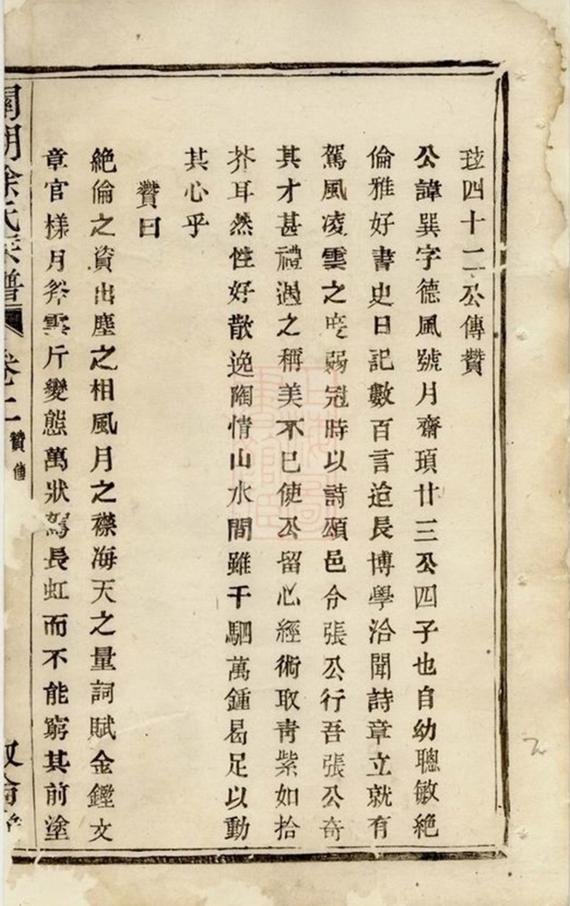 珓四十二公傳贊
公諱巽字德風號月齋頊廿三公四子也自幼聰敏絕
倫雅好書史日記數百言迨長博學洽聞詩章立就有
駕風凌雲之度弱冠時以詩頌邑令張公行吾張公奇
其才甚禮遇之稱美不已使公留心經術取青紫如拾
芥耳然性好散逸陶情山水間雖千駟萬鍾曷足以動
其心乎
贊曰
絶倫之資出塵之相風月之襟海天之量詞賦金鏗文
章官樣月斧雲斤變態萬狀駕長虹而不能窮其前塗
徐氏宗譜
卷二
贊傳